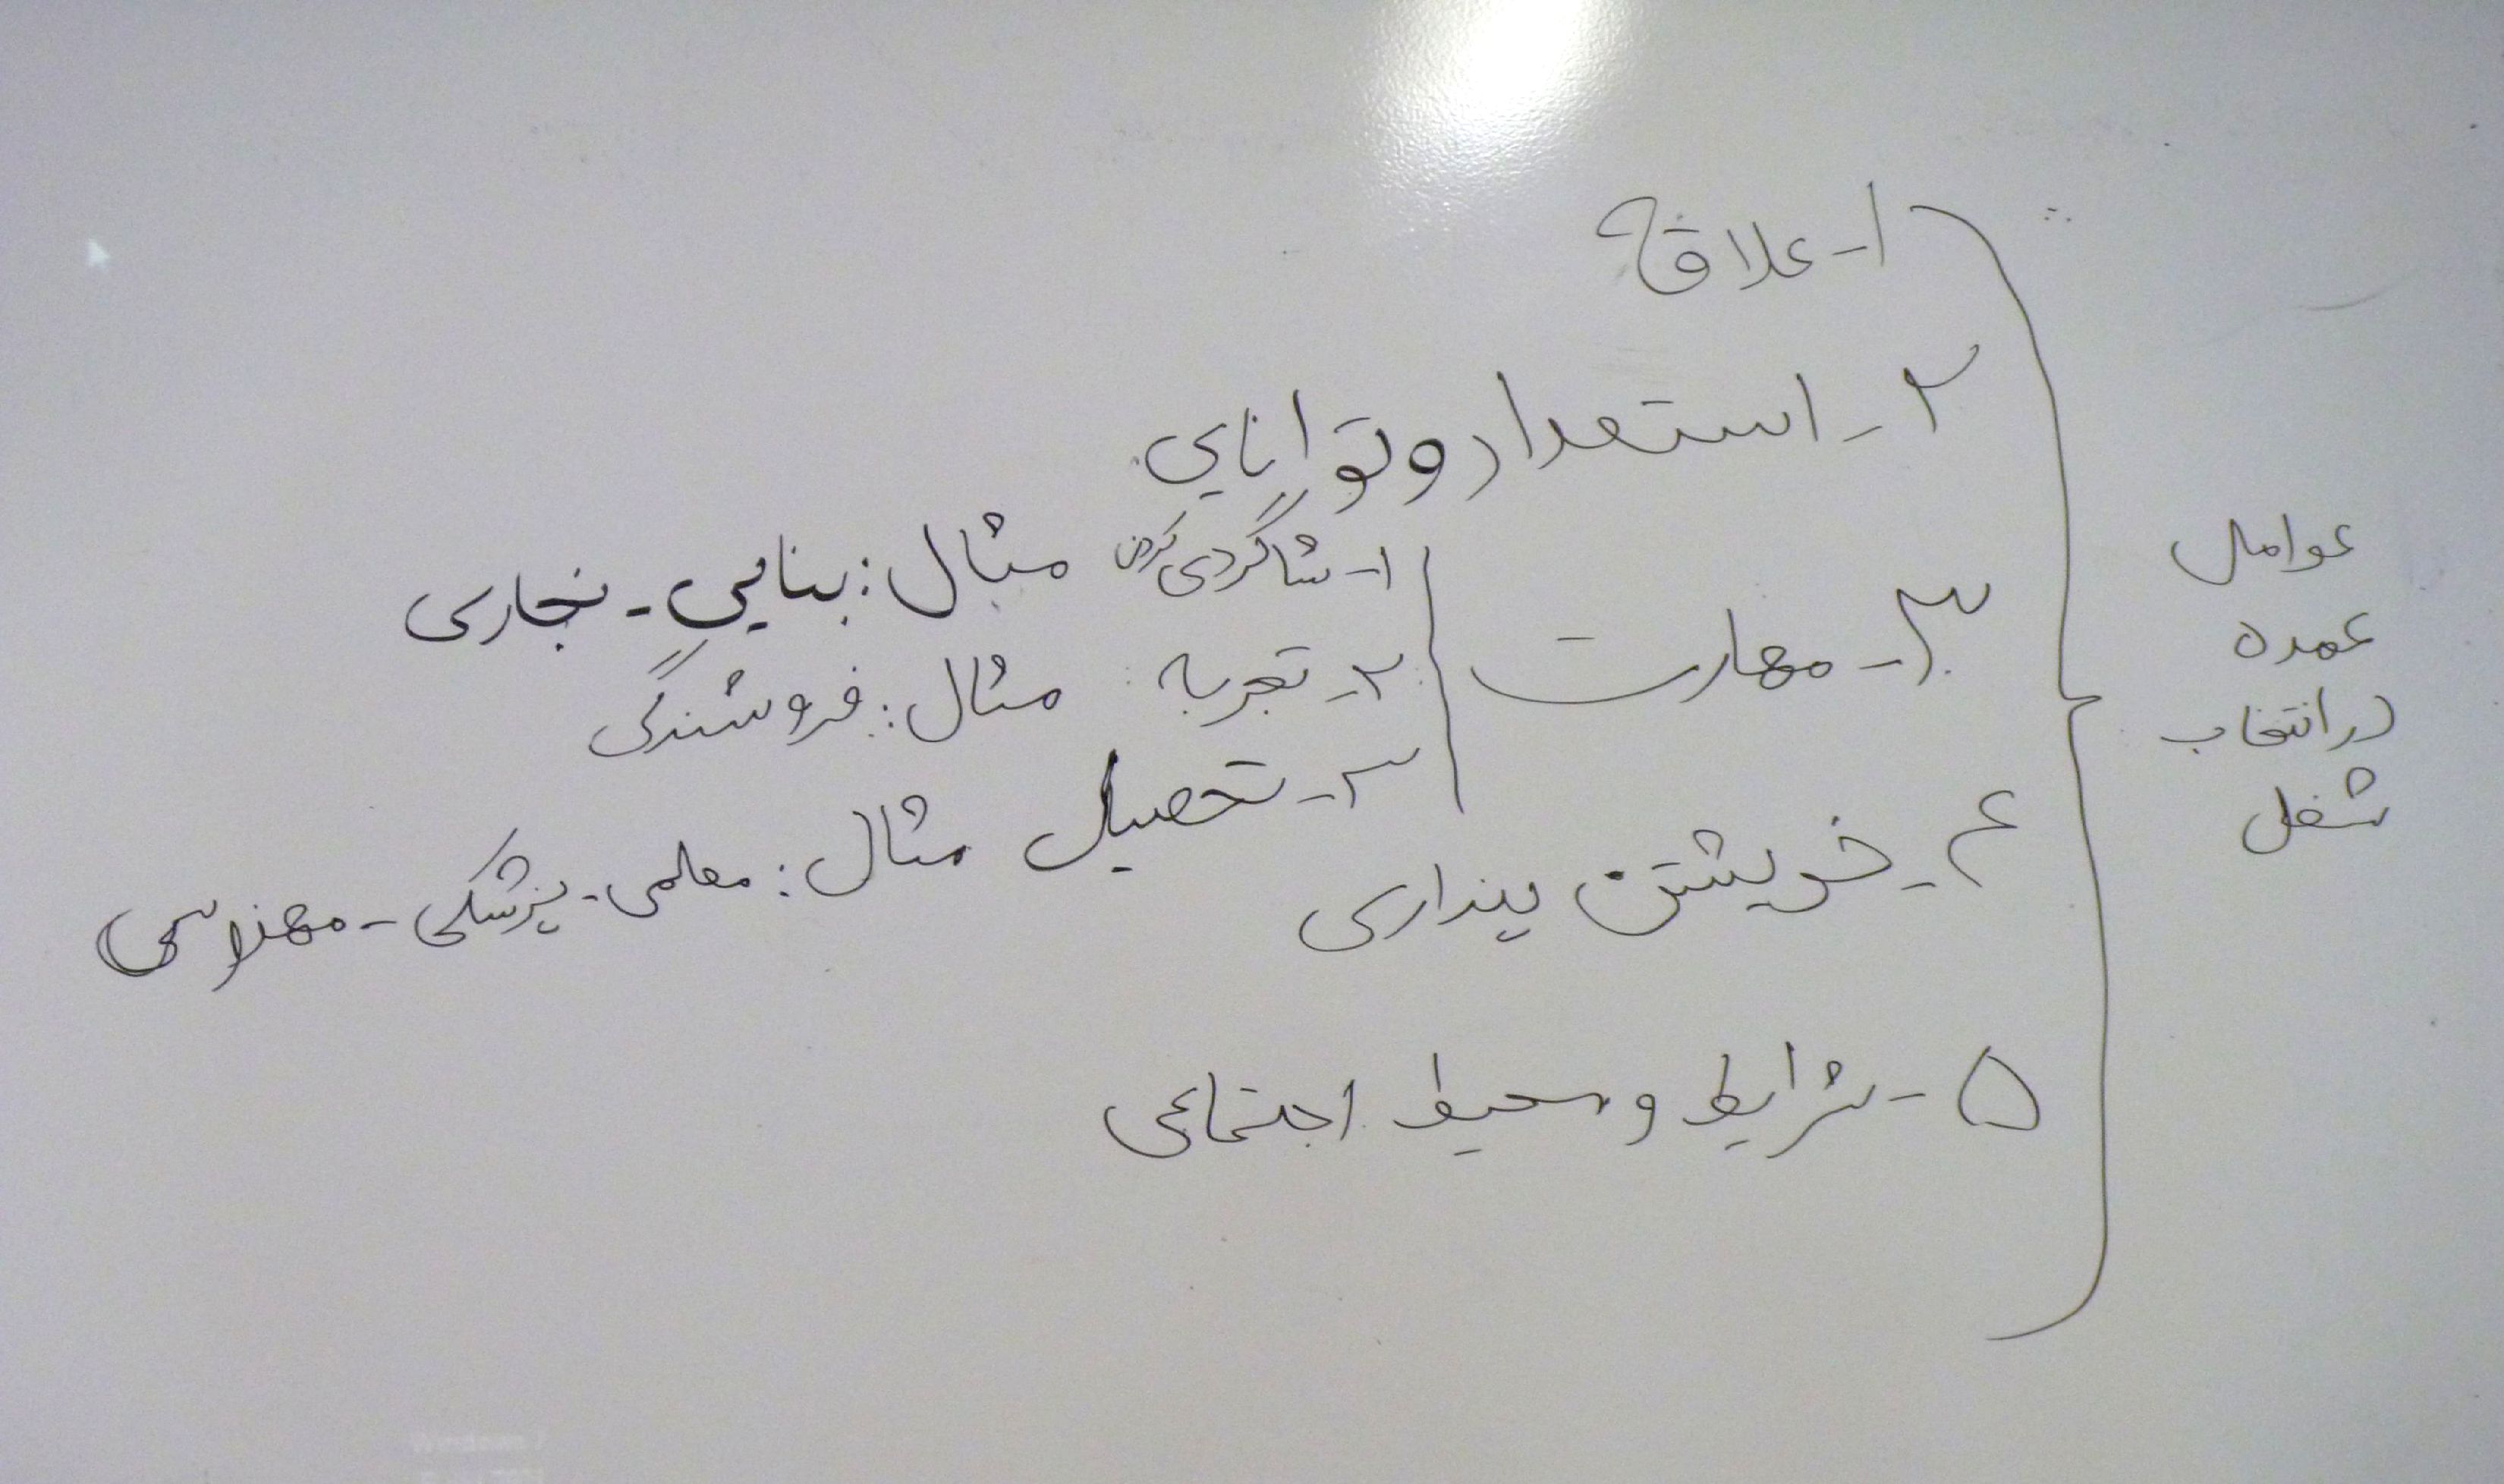 عوامل
عمده
در انتخاب
شغل
۱- علاقه
۲- استعداد و توانایی
۳- مهارت
۱- شاگردی کردن مثال: بنایی - نجاری
۲- تجربه مثال: فروشندگی
۳- تحصیل مثال: معلمی - پزشکی - مهندسی
۴- خویشتن پنداری
۵- شرایط و محیط اجتماعی